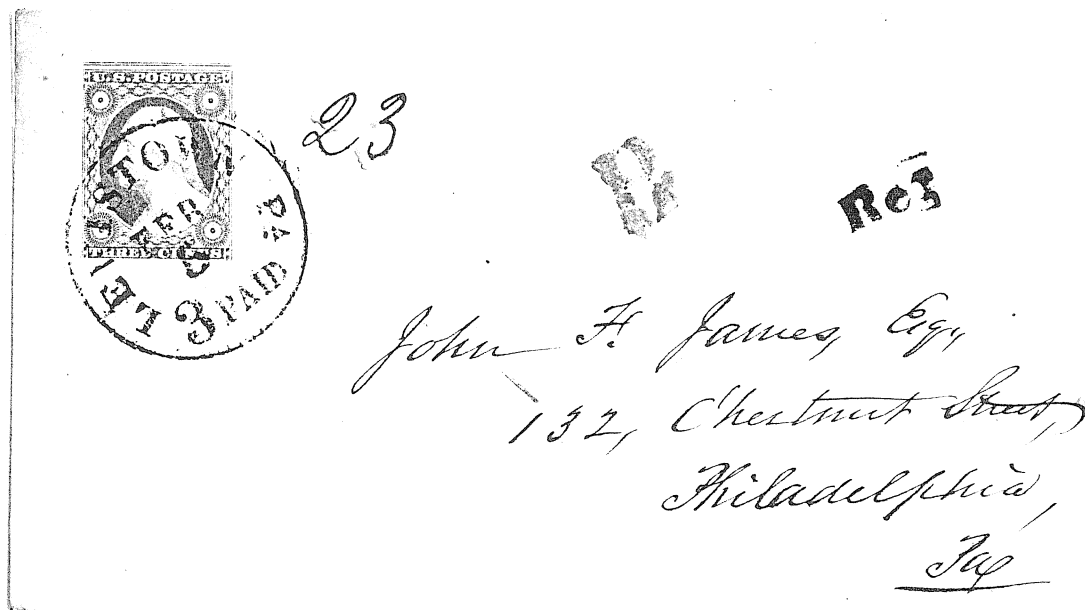 U.S. POSTAGE
THREE CENTS
LEWISTOWN PA
FEB
3 PAID
23
Reg
John F. James, Esq,
132, Chestnut Street,
Philadelphia,
Pa